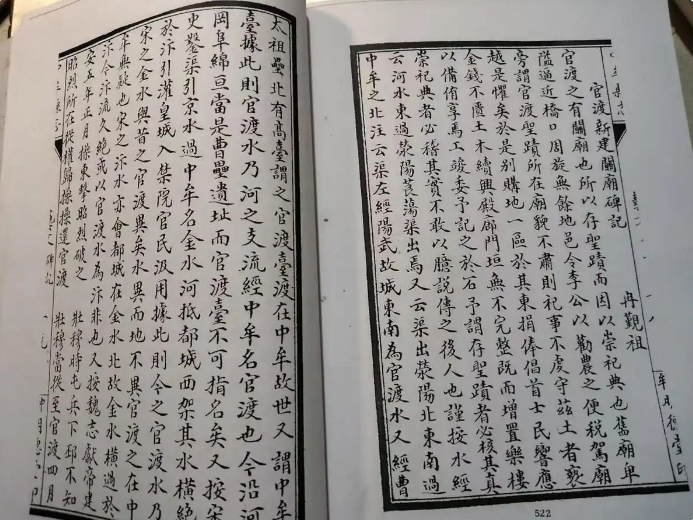 官渡新建關廟碑記 冉覲祖
官渡之有關廟也所以存聖蹟而因以崇祀典也舊廟卑
隘逼近橋口周旋無餘地邑令李公以勸農之便稅駕廟
旁謂官渡聖蹟所在廟貌不肅則祀事不虔守茲土者褻
越是懼矣於是別購地一區於其東捐俸倡首士民響應
金錢不匱土木續興殿廊門垣無不完整既而增置樂樓
以備侑享焉工竣委予記之於石予謂存聖蹟者必核其真
崇祀典者必稽其實不敢以臆說傳之後人也謹按水經
云河水東過滎陽莨蕩渠出焉又云渠出滎陽北東南過
中牟之北注云渠左經陽武故城東南為官渡水又經曹
522
太祖壘北有高臺謂之官渡臺渡在中牟故世又謂中牟
臺據此則官渡水乃河之支流經中牟名官渡也今沿河
岡阜綿亘當是曹壘遺址而官渡臺不可指名矣又按宋
史鑿渠引京水過中牟名金水河抵都城西架其水橫絕
於汴引灌皇城入禁院官民汲用據此則今之官渡水乃
宋之金水與昔之官渡異矣水異而地不異官渡之在中
牟無疑也宋之汴水亦會都城在金水北故金水橫過於
汴今汴流久絶或以官渡水為汴非也又按魏志獻帝建
安五年正月操東擊昭烈破之 壯穆時屯兵下邳不知
昭烈所在從權歸操操還官渡 壯穆當從至官渡四月